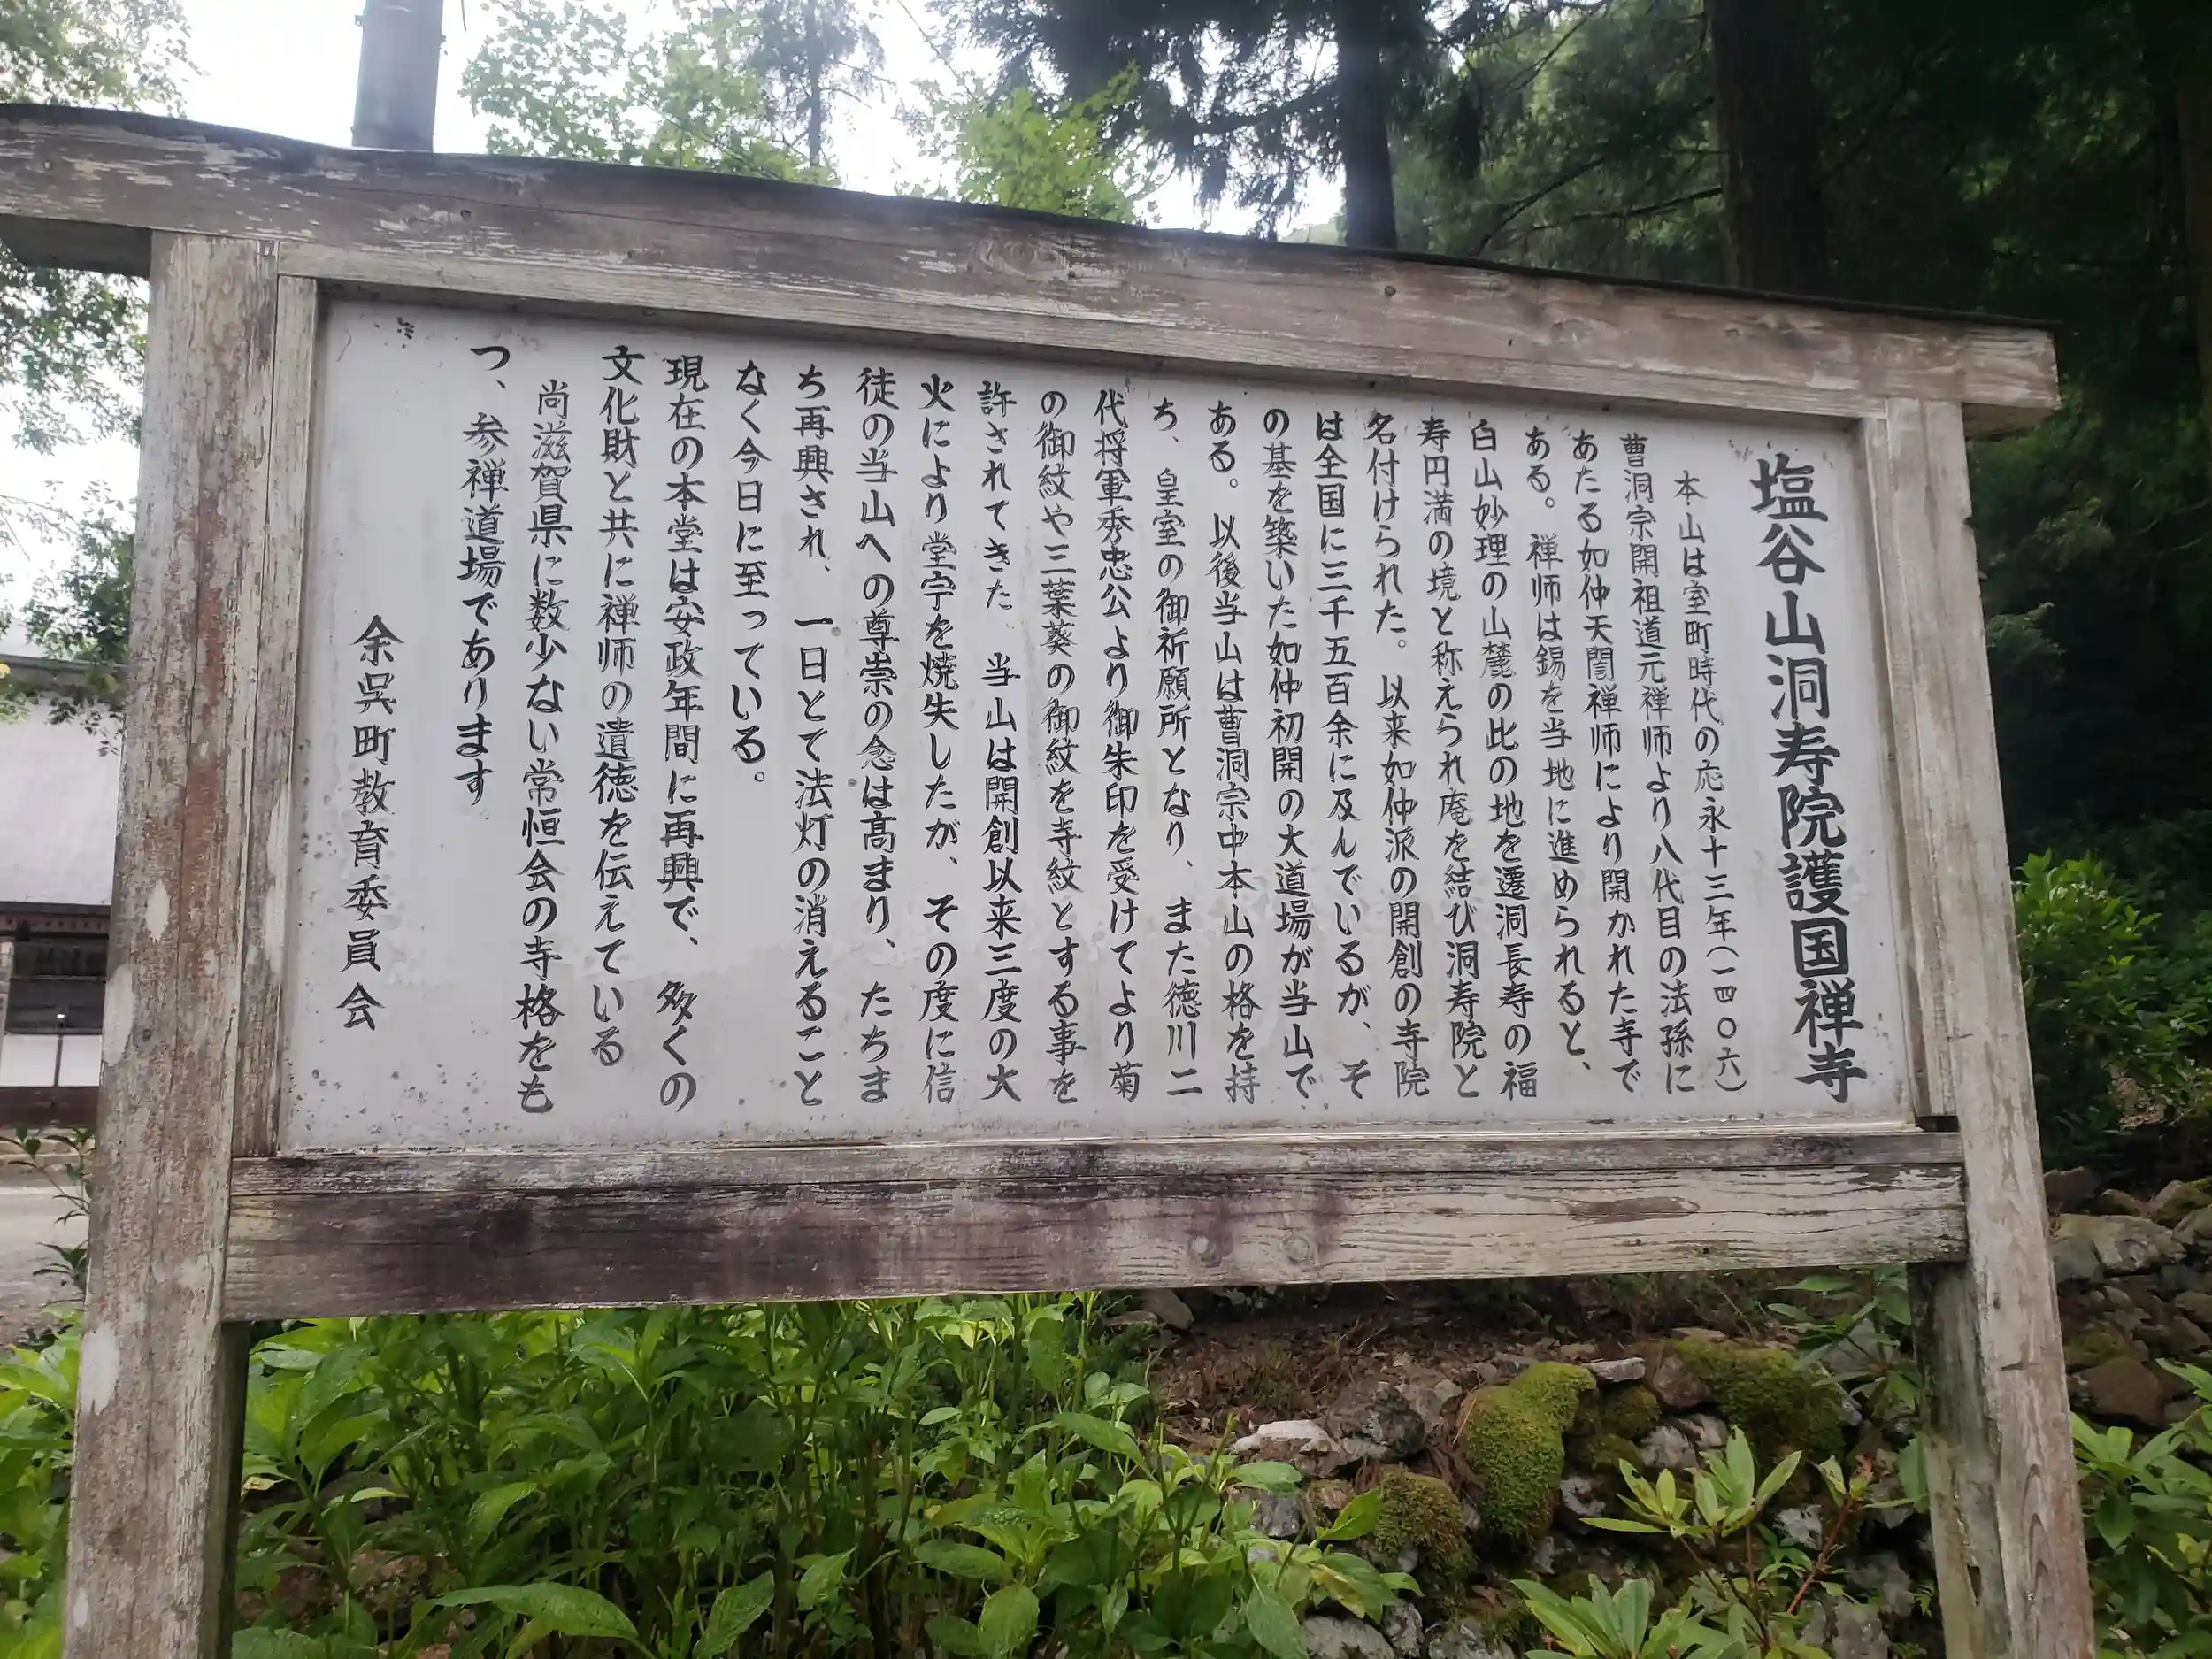 塩谷山洞寿院護国禅寺
本山は室町時代の応永十三年(一四〇六)
曹洞宗開祖道元禅師より八代目の法孫に
あたる如仲天誾禅師により開かれた寺で
ある。禅師は錫を当地に進められると、
白山妙理の山麓の此の地を遷洞長寿の福
寿円満の境と称えられ庵を結び洞寿院と
名付けられた。以来如仲派の開創の寺院
は全国に三千五百余に及んでいるが、そ
の基を築いた如仲初開の大道場が当山で
ある。以後当山は曹洞宗中本山の格を持
ち、皇室の御祈願所となり、また徳川二
代将軍秀忠公より御朱印を受けてより菊
の御紋や三葉葵の御紋を寺紋とする事を
許されてきた。当山は開創以来三度の大
火により堂宇を焼失したが、その度に信
徒の当山への尊崇の念は高まり、たちま
ち再興され、一日とて法灯の消えること
なく今日に至っている。
現在の本堂は安政年間に再興で、多くの
文化財と共に禅师の遺徳を伝えている
尚滋賀県に数少ない常恒会の寺格をも
つ、参禅道場であります
余呉町教育委員会